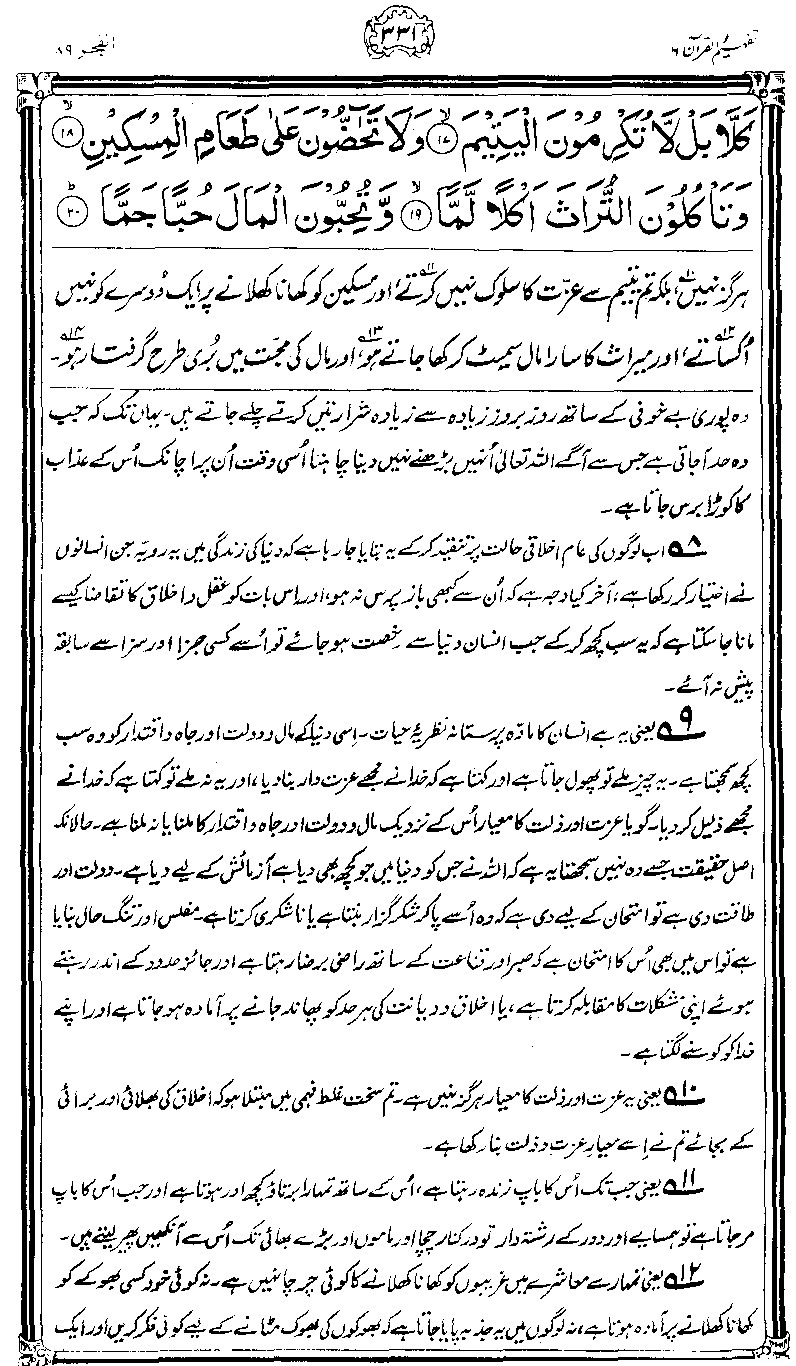 تفہیم القرآن ۶
۳۳۱
الفجر ۸۹
كَلَّا بَلْ لَّا تُكْرِمُوْنَ الْيَتِيْمَ ﴿۱۷﴾ وَلَا تَحٰٓضُّوْنَ عَلٰى طَعَامِ الْمِسْكِيْنِ ﴿۱۸﴾
وَتَاْكُلُوْنَ التُّرَاثَ اَكْلًا لَّمًّا ﴿۱۹﴾ وَّتُحِبُّوْنَ الْمَالَ حُبًّا جَمًّا ﴿۲۰﴾
ہرگز نہیں۱۰، بلکہ تم یتیم سے عزّت کا سلوک نہیں کرتے۱۱، اور مسکین کو کھانا کھلانے پر ایک دُوسرے کو نہیں
اُکساتے۱۲، اور میراث کا سارا مال سمیٹ کر کھا جاتے ہو۱۳، اور مال کی محبّت میں بُری طرح گرفتار ہو۱۴۔
وہ پوری بے خوفی کے ساتھ روز بروز زیادہ سے زیادہ شرارتیں کرتے چلے جاتے ہیں۔ یہاں تک کہ جب
وہ حد آجاتی ہے جس سے آگے اللہ تعالیٰ اُنہیں بڑھنے نہیں دینا چاہتا اُسی وقت اُن پر اچانک اُس کے عذاب
کا کوڑا برس جاتا ہے۔
۸ اب لوگوں کی عام اخلاقی حالت پر تنقید کرکے یہ بتایا جا رہا ہے کہ دنیا کی زندگی میں یہ رویہ جن انسانوں
نے اختیار کر رکھا ہے، آخر کیا وجہ ہے کہ اُن سے کبھی باز پرس نہ ہو، اور اِس بات کو عقل و اخلاق کا تقاضا کیسے
مانا جا سکتا ہے کہ یہ سب کچھ کر کے جب انسان دنیا سے رخصت ہو جائے تو اُسے کسی جزا اور سزا سے سابقہ
پیش نہ آئے۔
۹ یعنی یہ ہے انسان کا مادّہ پرستانہ نظریۂ حیات۔ اِسی دنیا کے مال و دولت اور جاہ و اقتدار کو وہ سب
کچھ سمجھتا ہے۔ یہ چیز ملے تو پھول جاتا ہے اور کہتا ہے کہ خدا نے مجھے عزت دار بنا دیا، اور یہ نہ ملے تو کہتا ہے کہ خدا نے
مجھے ذلیل کر دیا۔ گویا عزت اور ذلت کا معیار اُس کے نزدیک مال و دولت اور جاہ و اقتدار کا ملنا یا نہ ملنا ہے۔ حالانکہ
اصل حقیقت جسے وہ نہیں سمجھتا یہ ہے کہ اللہ نے جس کو دنیا میں جو کچھ بھی دیا ہے آزمائش کے لیے دیا ہے۔ دولت اور
طاقت دی ہے تو امتحان کے لیے دی ہے کہ وہ اُسے پاکر شکر گزار بنتا ہے یا ناشکری کرتا ہے۔ مفلس اور تنگ حال بنایا
ہے تو اس میں بھی اُس کا امتحان ہے کہ صبر اور قناعت کے ساتھ راضی برضا رہتا ہے اور جائز حدود کے اندر رہتے
ہوئے اپنی مشکلات کا مقابلہ کرتا ہے، یا اخلاق و دیانت کی ہر حد کو پھاند جانے پر آمادہ ہو جاتا ہے اور اپنے
خدا کو کوسنے لگتا ہے۔
۱۰ یعنی یہ عزت اور ذلت کا معیار ہرگز نہیں ہے۔ تم سخت غلط فہمی میں مبتلا ہو کہ اخلاق کی بھلائی اور برائی
کے بجائے تم نے اِسے معیارِ عزت و ذلت بنا رکھا ہے۔
۱۱ یعنی جب تک اُس کا باپ زندہ رہتا ہے، اُس کے ساتھ تمہارا برتاؤ کچھ اور ہوتا ہے اور جب اُس کا باپ
مر جاتا ہے تو ہمسایے اور دور کے رشتہ دار تو درکنار چچا اور ماموں اور بڑے بھائی تک اُس سے آنکھیں پھیر لیتے ہیں۔
۱۲ یعنی تمہارے معاشرے میں غریبوں کو کھانا کھلانے کا کوئی چرچا نہیں ہے۔ نہ کوئی خود کسی بھوکے کو
کھانا کھلانے پر آمادہ ہوتا ہے، نہ لوگوں میں یہ جذبہ پایا جاتا ہے کہ بھوکوں کی بھوک مٹانے کے لیے کوئی فکر کریں اور ایک